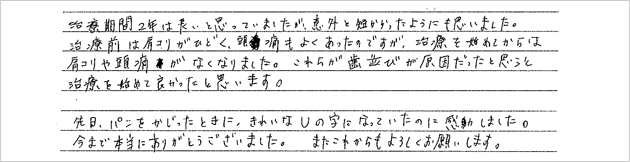 治療期間2年は長いと思っていましたが、意外と短かったようにも思いました。
治療前は肩コリがひどく、頭痛もよくあったのですが、治療を始めてからは
肩コリや頭痛がなくなりました。これらが歯並びが原因だったと思うと
治療を始めて良かったと思います。
先日、パンをかじったときに、きれいなUの字になっていたのに感動しました。
今まで本当にありがとうございました。 またこれからもよろしくお願いします。